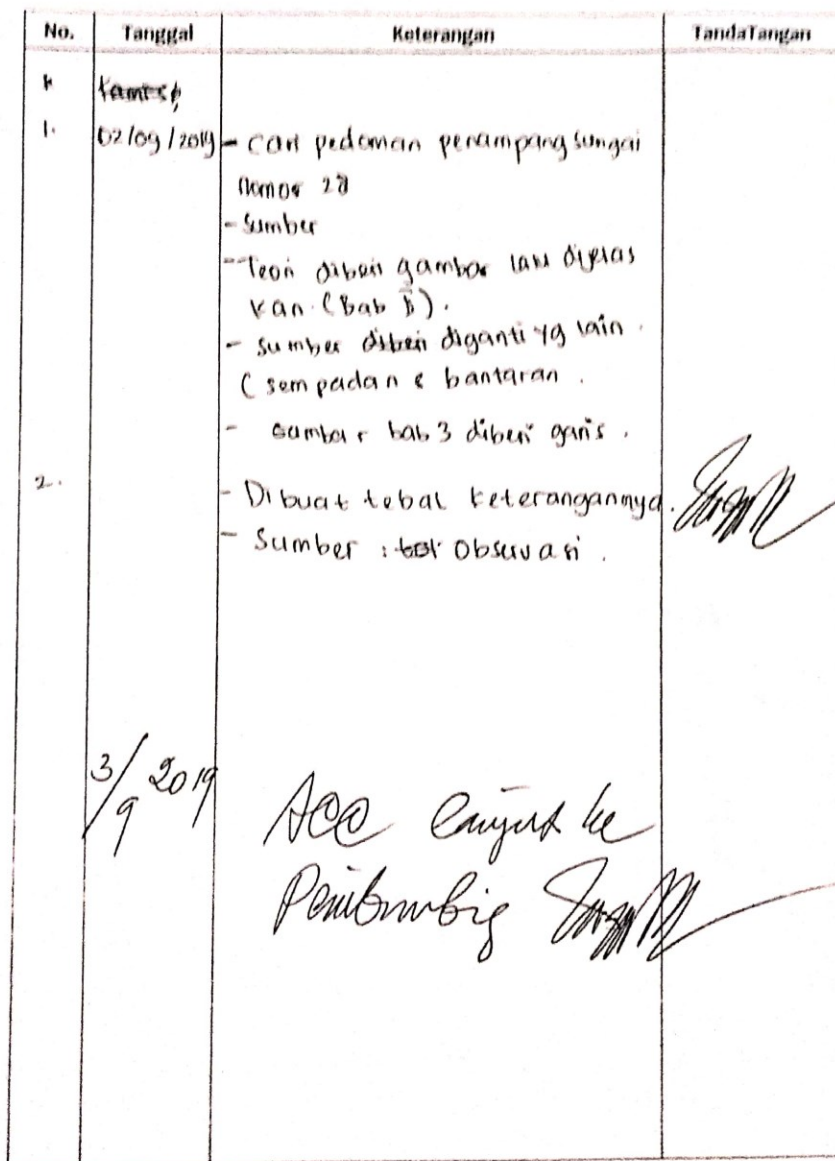 No. Tanggal Keterangan TandaTangan
Kamis
1. 02/09/2019 - Cari pedoman penampang sungai
Nomor 28
- Sumber
- Teori diberi gambar lalu dijelas
kan. (Bab ).
- Sumber diberi diganti yg lain.
( sempadan & bantaran.
- Gambar bab 3 diberi garis.
2. - Dibuat tebal keterangannya.
- Sumber : Observasi.
3/9 2019 ACC lanjut ke
Pembimbing